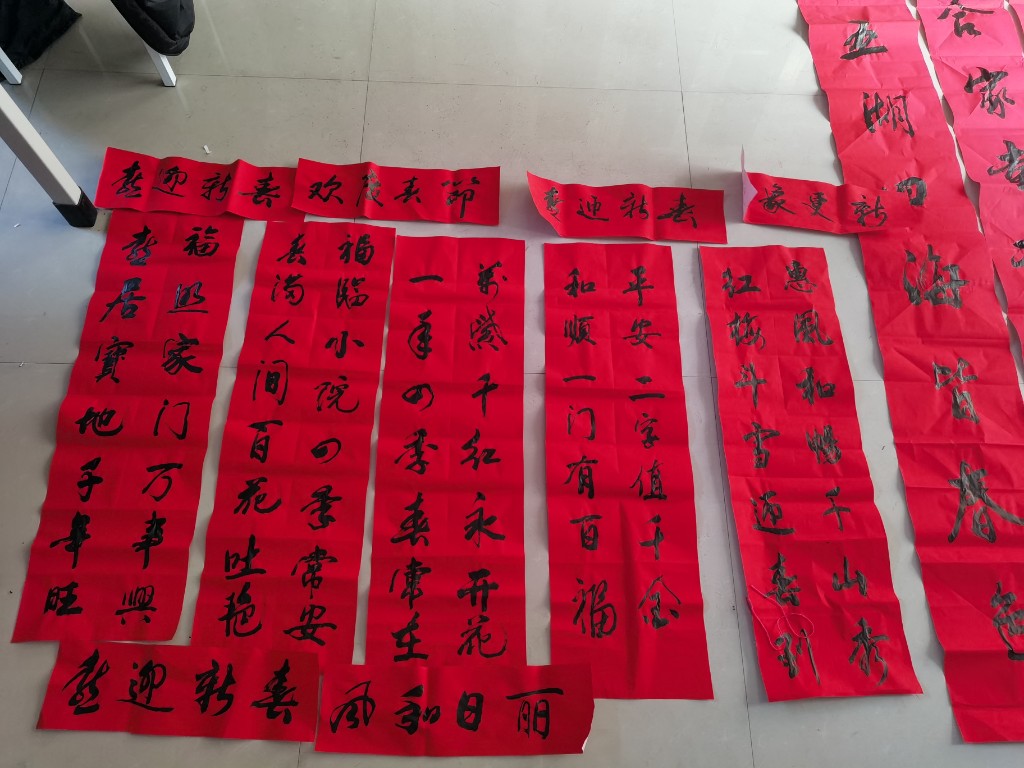 喜迎新春
欢度春節
喜迎新春
象更新
福照家门万事興
喜居寶地千年旺
福臨小院四季常安
春满人间百花吐艳
萬紫千红永开花
一年四季春常在
平安二字值千金
和顺一门有百福
惠風和畅千山秀
红梅斗雪迎春到
五湖四海皆春色
合家
喜迎新春
风和日丽